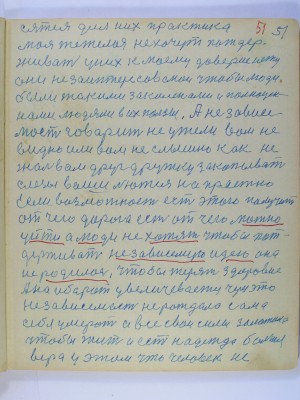 сятся для них практика 51 51
моя тяжелая не хочут поддер-
живать у них к моему доверия нету
они не заинтерсованои чтобы люди
были такими закаленами и полноцен-
ными людями в их пользу, А независи-
мость говорит неужели вам не
видно или вам не слышно как не
жал вам друг дружку закапывать
слезы ваши льются напрастно
Если возможност ест этого получить
от чего дорога ест от чего можно
уйти а люди не хотят чтобы под-
держивать независимую идею она
не родилас, чтобы терят здоровие
А на оборот увеличевает чуство
независемост не рождала сама
себя умерат а все свои силы
чтобы жит и ест надежда
вера у этом что человек не